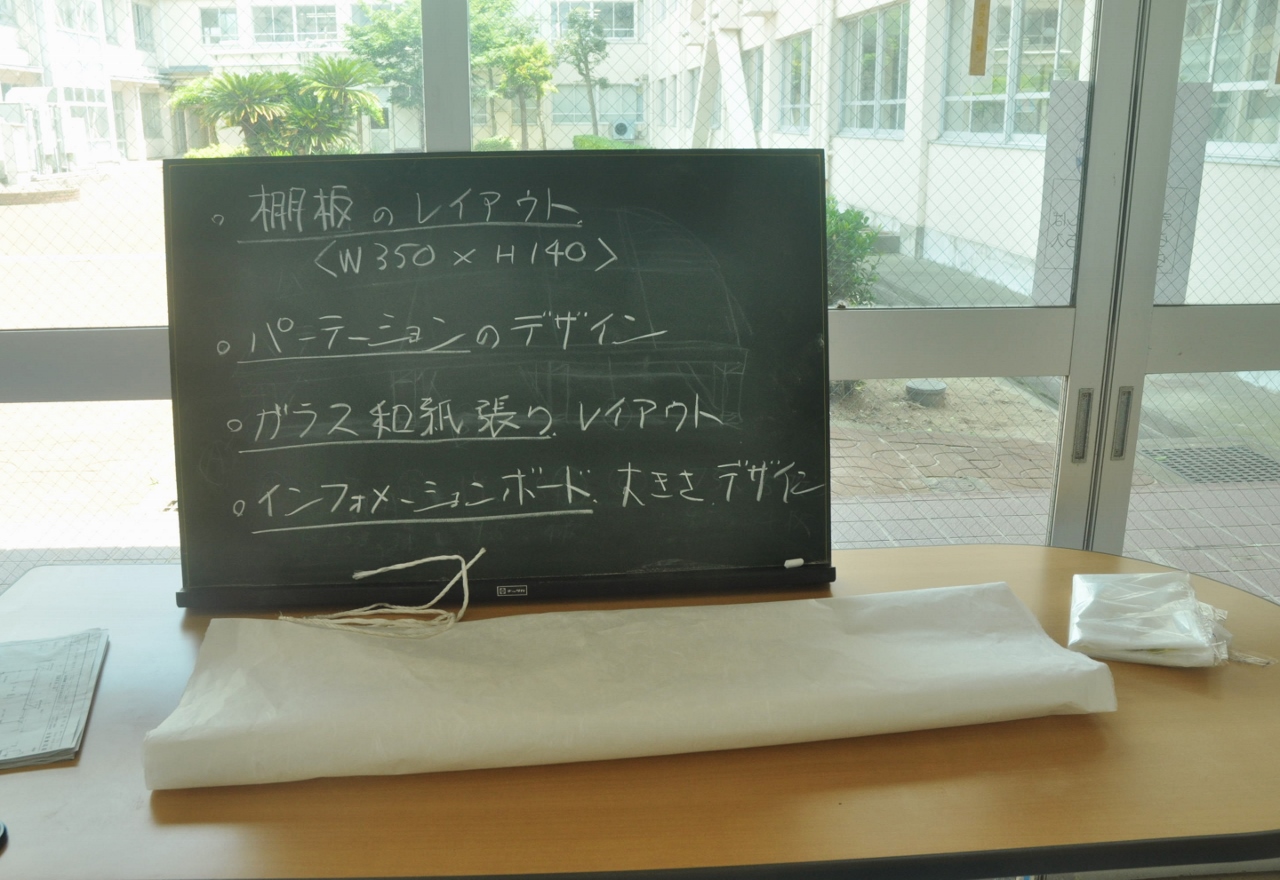 ○ 棚板のレイアウト
〈W350×H140〉
○ パーテーションのデザイン
○ ガラス和紙張りレイアウト
○ インフォメーションボード.大きさ.デザイン